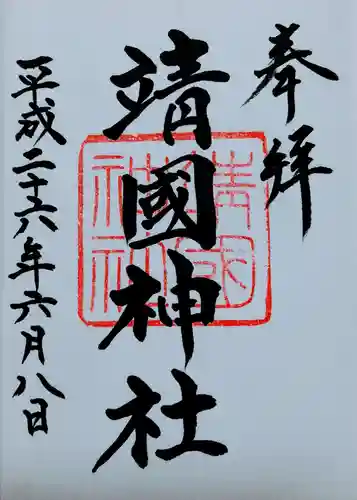 奉拝
靖國神社
靖國
神社
平成二十六年六月八日